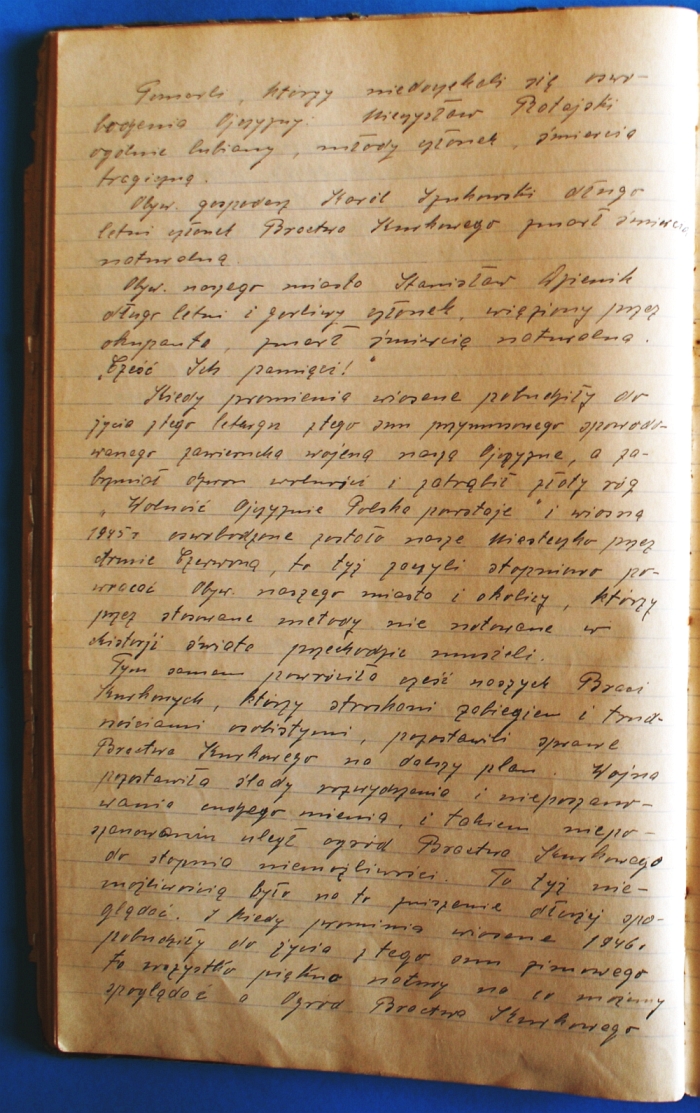 Pomarli, którzy niedoczekali się oswo-
bodzenia Ojczyzny: Mieczysław Ratajski
ogólnie lubiany, młody członek, śmiercią
tragiczną.
Obyw. gospodarz Karól Szukowski długo
letni członek Bractwa Kurkowego zmarł śmiercią
naturalną.
Obyw. naszego miasta Stanisław
długo letni i gorliwy członek, więziony przez
okupanta, zmarł śmiercią naturalną.
"Cześć Ich pamięci!"
Kiedy promienia wiosene pobudziły do
życia z tego letargu z tego snu przymusonego spowodo-
wanego zawieruchą wojeną naszą Ojczyznę, a za-
brzmiał dzwon wolności i zatrąbił złoty róg
"Wolność Ojczyźnie Polska powstaje" i wiosną
1945 r oswobodzone zostało nasze Miasteczko przez
Armie Czerwoną, to tyż zaczyli stopniowo po-
wracać Obyw. naszego miasta i okolicy, którzy
przez stosowane metody nie notowane w
historji świata przechodzic musieli.
Tym samem powróciła cześć naszych Braci
Kurkowych, którzy stroskani zabiegiem i trud-
nościami osobistymi, pozostawili sprawe
Bractwa Kurkowego na dalszy plan. Wojna
pozostawiła ślady rozwydrzenia i nieposzano-
wania cudzego mienia, i takiem niepo-
szanowaniu uległ ogród Bractwa Kurkowego
do stopnia niemożliwości. To tyż nie-
możliwością było na to zniszzenie dłużej spo-
glądać. I kiedy prominia wiosene 1946 r
pobudziły do życia z tego snu zimowego
to wszystko piękno natury na co możemy
spoglądać a Ogród Bractwa Kurkowego